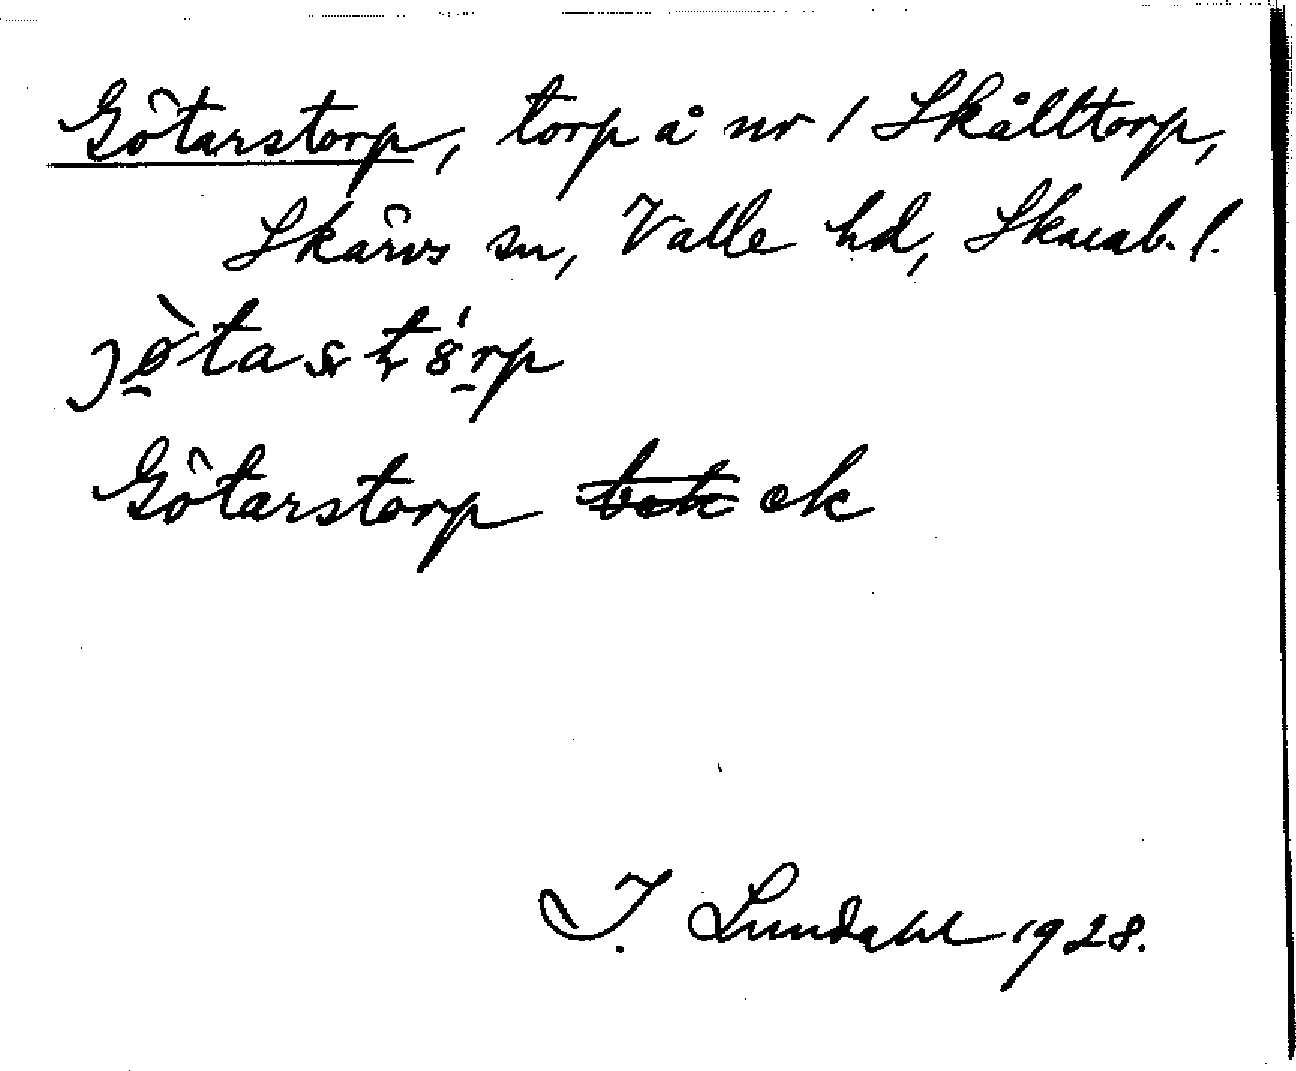 Götarstorp, torp å nr 1 Skålltorp,
Skärvs sn, Valle hd, Skarab. l.
Götarstorp ek
I. Lundahl 1928.